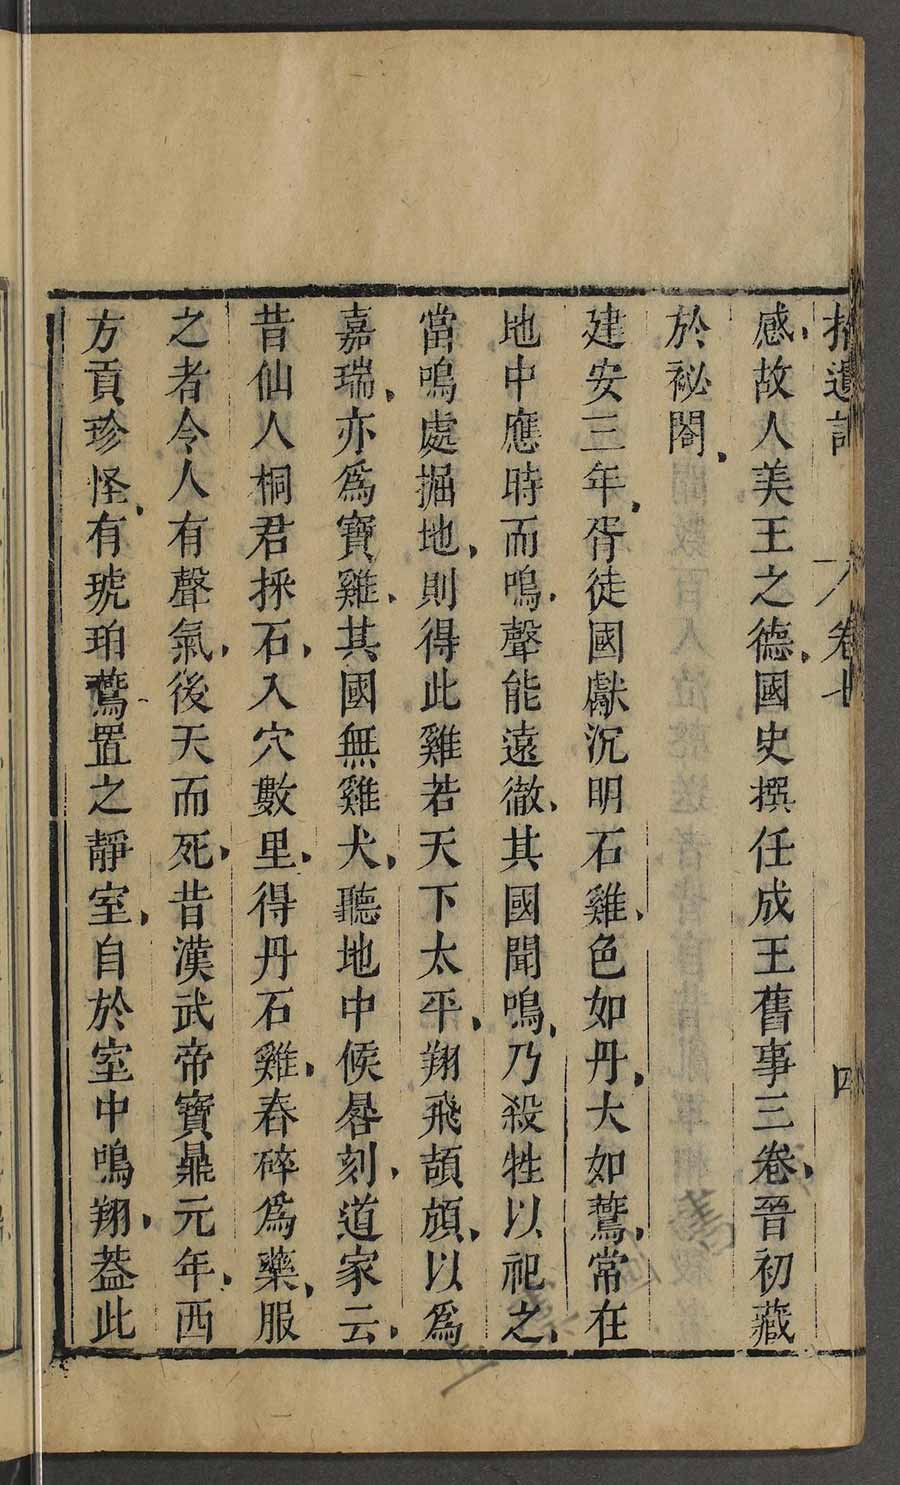 拾遺記 卷七 四
感故人美王之德國史撰任成王舊事三卷晉初藏
於祕閣
建安三年胥徒國獻沉明石雞色如丹大如鷰常在
地中應時而鳴聲能遠徹其國聞鳴乃殺牲以祀之
當鳴處掘地則得此雞若天下太平翔飛頡頏以爲
嘉瑞亦爲寶雞其國無雞犬聽地中候晷刻道家云
昔仙人桐君採石入穴數里得丹石雞舂碎爲藥服
之者令人有聲氣後天而死昔漢武帝寶鼎元年西
方貢珍怪有琥珀鷰置之靜室自於室中鳴翔葢此